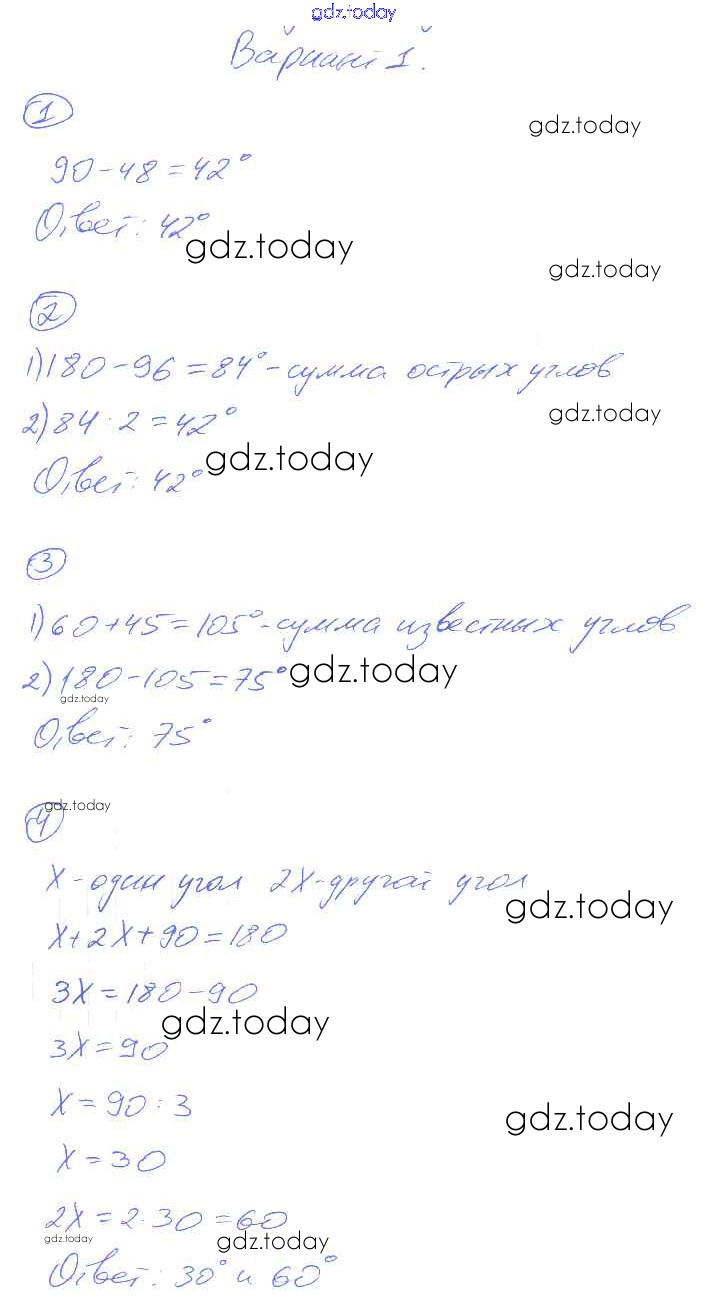 gdz.today
Вариант 1.
1
gdz.today
90-48=42°
Ответ: 42°
gdz.today
gdz.today
2
1) 180-96=84°-сумма острых углов
2) 84:2=42°
gdz.today
gdz.today
Ответ: 42°
3
1) 60+45=105°-сумма известных углов
2) 180-105=75°
gdz.today
gdz.today
Ответ: 75°
gdz.today
4
x-один угол 2x-другой угол
gdz.today
x+2x+90=180
3x=180-90
gdz.today
3x=90
x=90:3
gdz.today
x=30
2x=2·30=60
gdz.today
gdz.today
Ответ: 30° и 60°